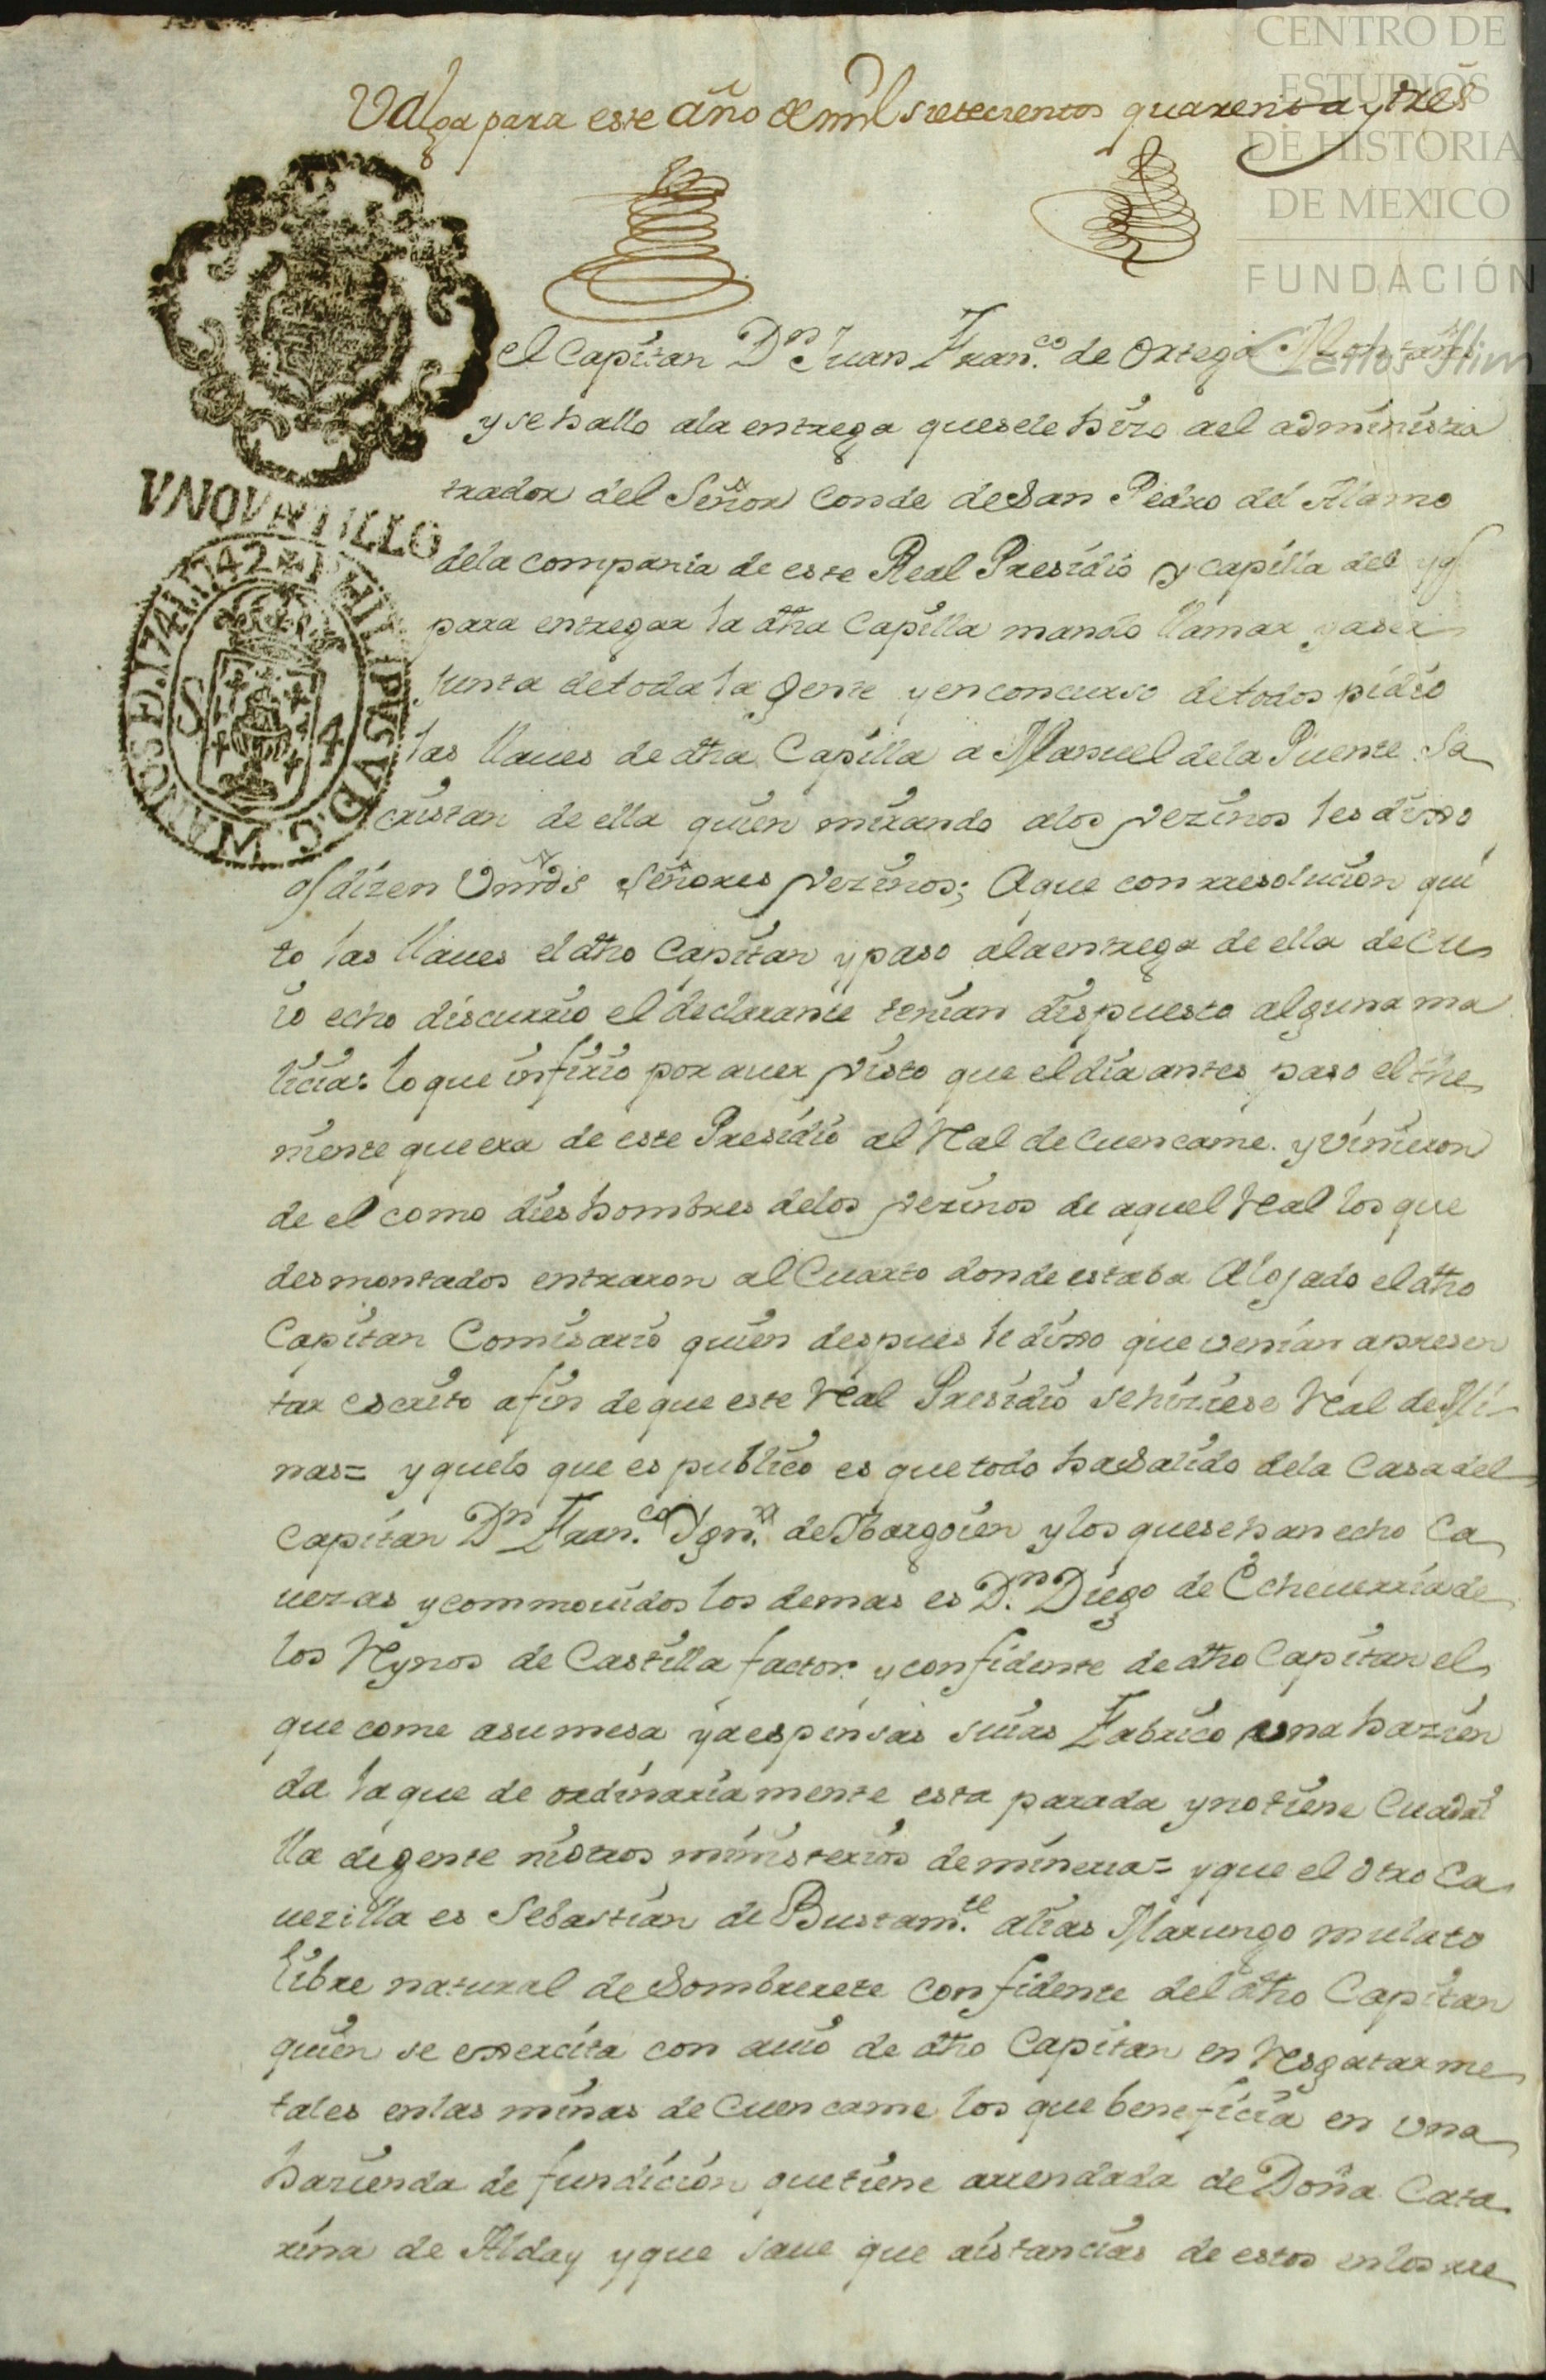 CENTRO DE
ESTUDIOS
DE HISTORIA
DE MEXICO
FUNDACIÓN
Carlos Slim
Valga para este año de mil setecientos quarenta y tres
VNQVARTILLO
el Capitan Dn Juan Fran.co de Ortega
y se hallo ala entrega quesele hizo ael administra
trador del Señor Conde deSan Pedro del Alamo
dela compania de este Real Presidio y capilla del y q
para entregar la dha Capilla mando llamar y aser
junta detoda la gente y enconcurso detodos pidio
las llaues de dha Capilla a Manuel dela Puente Sa
cristan de ella quien mirando alos vezinos les dixo
q dizen Vmds Señores vezinos; Aque con rresolucion qui
to las llaues el dho Capitan y paso ala entrega de ella de Cu
io echo discurrio el declarante tenian dispuesto alguna ma
licia: lo que infirio por auer visto que el dia antes paso el the
niente que era de este Presidio al Real de Cuencame. y vinieron
de el como dies hombres delos vezinos de aquel Real los que
desmontados entraron al Cuarto donde estaba Alojado el dho
Capitan Comisario quien despues le dixo que venian apresen
tar escrito afin de que este Real Presidio se hiziese Real de Mi
nas= y quelo que es publico es quetodo haSalido dela Casa del
Capitan Dn Fran.co Ygn.o de Bargoien y los quesehan echo Ca
uezas y commouidos los demas es Dn. Diego de Echeuerria de
los Rynos de Castilla factor y confidente de dho Capitan el
que come asumesa y a espensas suias Fabrico una hazien
da la que de ordinariamente esta parada y no tiene Cuadri
lla de gente niotros ministerios demineria= y que el otro Ca
uezilla es Sebastian de Bustam.te alias Marungo mulato
libre natural de Sombrerete Confidente del dho Capitan
quien se exsercita con auio de dho Capitan en Resgatar me
tales enlas minas de Cuencame los que beneficia en vna
hazienda de fundicion quetiene arrendada de Doña Cata
rina de Alday y que saue que aistancias de estos enlos rre